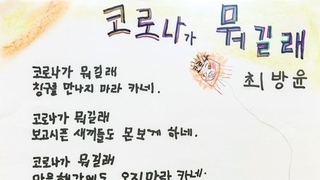 코로나가 뭐길래
최방윤
코로나가 뭐길래
친구를 만나지 마라 카네.
코로나가 뭐길래
보고시픈 새끼들도 못 보게 하네.
코로나가 뭐길래
마을회관에도 오지마라 카네.